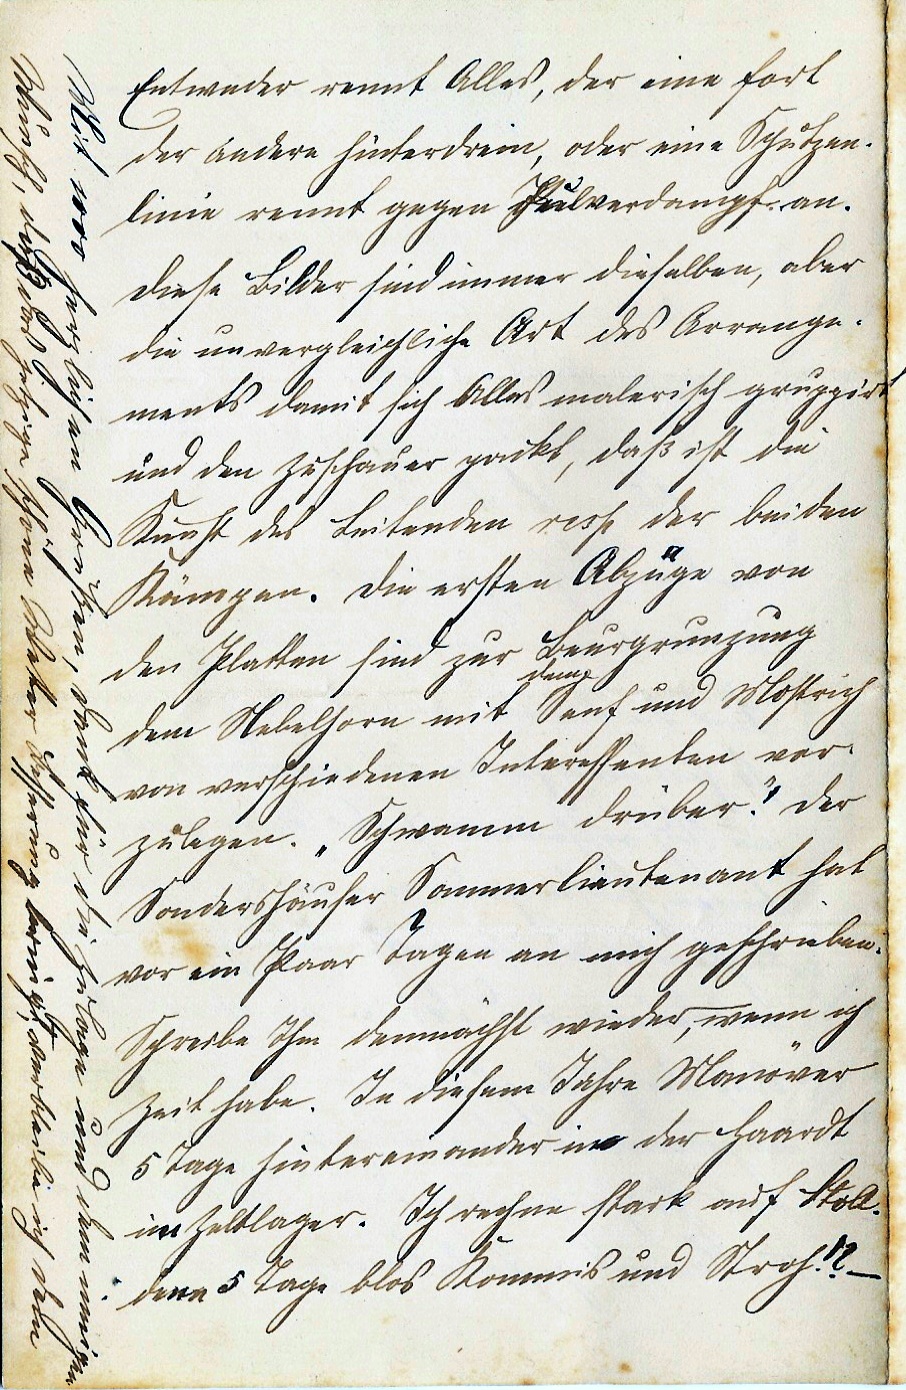 Entweder rennt Alles, der eine fort
der andere hinterdrein, oder eine Schützen-
linie rennt gegen Pulverdampf an.
Diese Bilder sind immer dieselben, aber
die unvergleichliche Art des Arrange-
ments damit sich Alles malerisch gruppirt
und den Zuschauer packt, daß ist die
Kunst des Leitenden resp der beiden
Kämpen. Die ersten Abzüge von
den Platten sind zur Beurgrunzung
dem Nebelhorn mit dem Senf und Mostrich
von verschiedenen Interessenten vor-
zulegen. „Schwamm drüber". Der
Sondershäuser Sommerlieutenant hat
vor ein Paar Tagen an mich geschrieben.
Schreibe Ihm demnächst wieder, wenn ich
Zeit habe. In diesem Jahre Manöver
5 Tage hintereinander in der Haardt
im Zeltlager. Ich rechne stark auf
denn 5 Tage blos Kommis und Stroh!?—
Mit herzlichen Grüßen, Dank für die Zulage und den
Wunsch, daß bleibe ich Dein